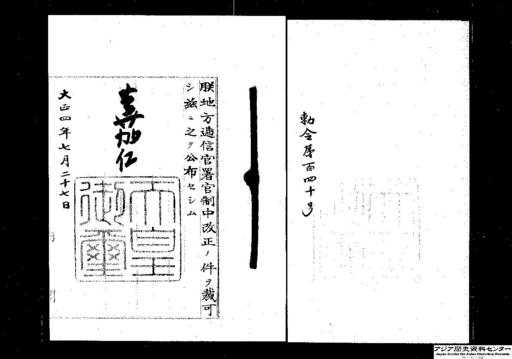 勅令第百四十号
朕地方逓信官署官制中改正ノ件ヲ裁可
シ茲ニ之ヲ公布セシム
嘉仁
天皇御璽
大正四年七月二十七日
アジア歴史資料センター
Japan Center for Asian Historical Records